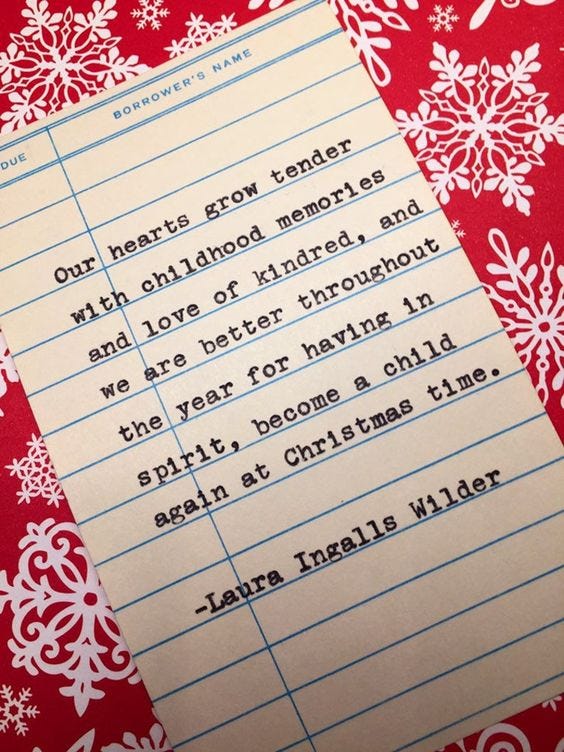 DUE
BORROWER'S NAME
Our hearts grow tender
with childhood memories
and love of kindred, and
we are better throughout
the year for having in
spirit, become a child
again at Christmas time.
-Laura Ingalls Wilder